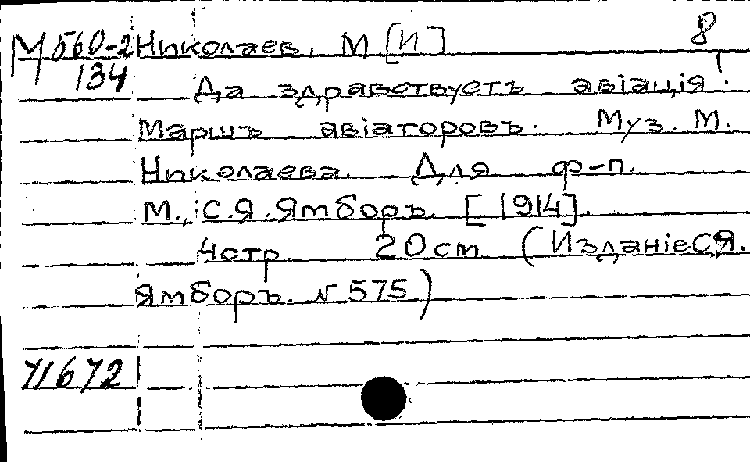 М 560-2 Николаев, М [И] 8
134 Да здравствуетъ авіація!
Маршъ авіаторовъ. Муз. М.
Николаева. Для ф-п.
М., С.Я. Ямборъ [1914]
4 стр 20 ст (Изданіе С.Я.
Ямборъ. N 575)
71672